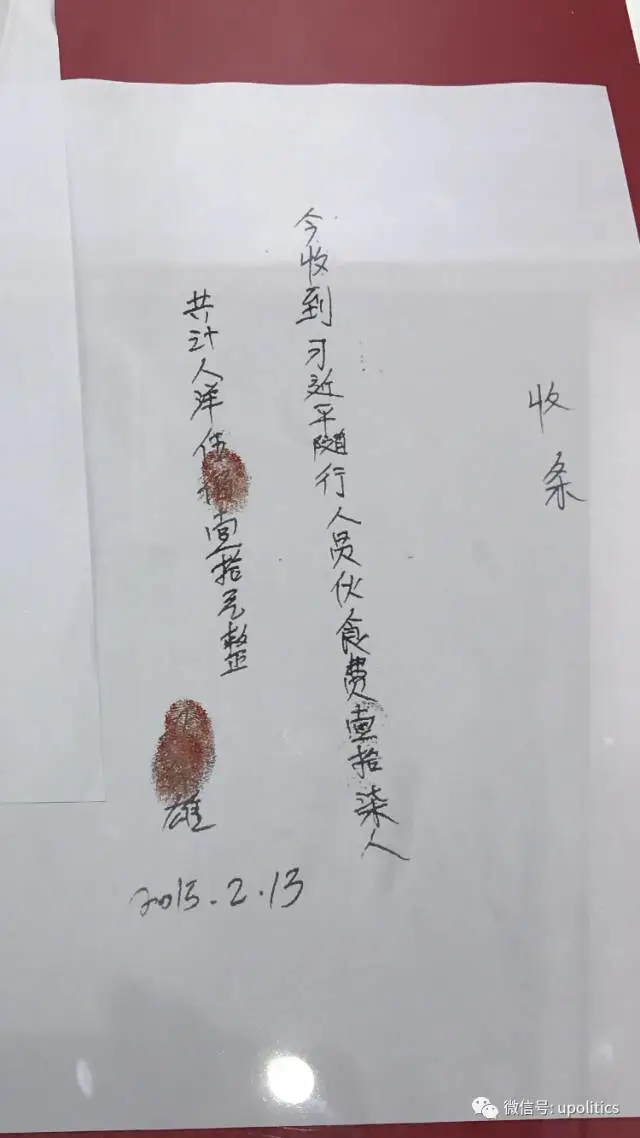 收条
今收到习近平随行人员伙食费壹拾柒人
共计人洋伍壹拾元整
雄
2015.2.13
微信号: upolitics